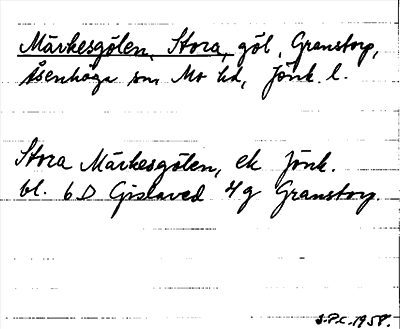 Märkesgölen, Stora, göl, Granstorp,
Åsenhöga sn Mo hd, Jönk. l.
Stora Märkesgölen, ek Jönk.
bl. 6D Gislaved 4g Granstorp.
S.P.C. 1958.